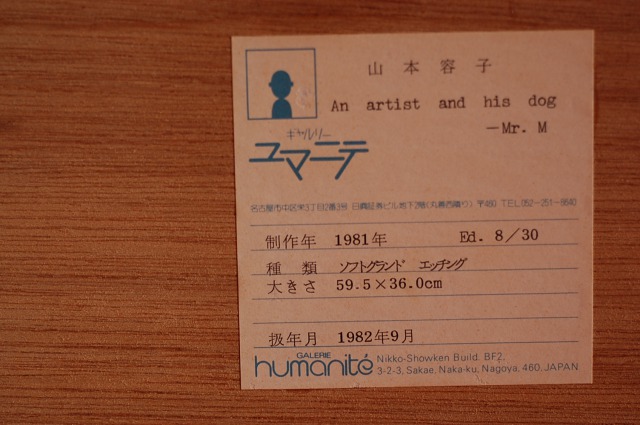 山本容子
An artist and his dog
—Mr. M
ギャルリー
ユマニテ
名古屋市中区栄3丁目2番3号 日興証券ビル地下2階(丸善西隣り) 〒460 TEL052-251-8640
制作年 1981年 Ed. 8/30
種類 ソフトグランド エッチング
大きさ 59.5×36.0cm
扱年月 1982年9月
GALERIE
humanité
Nikko-Showken Build. BF2.
3-2-3, Sakae, Naka-ku, Nagoya, 460, JAPAN